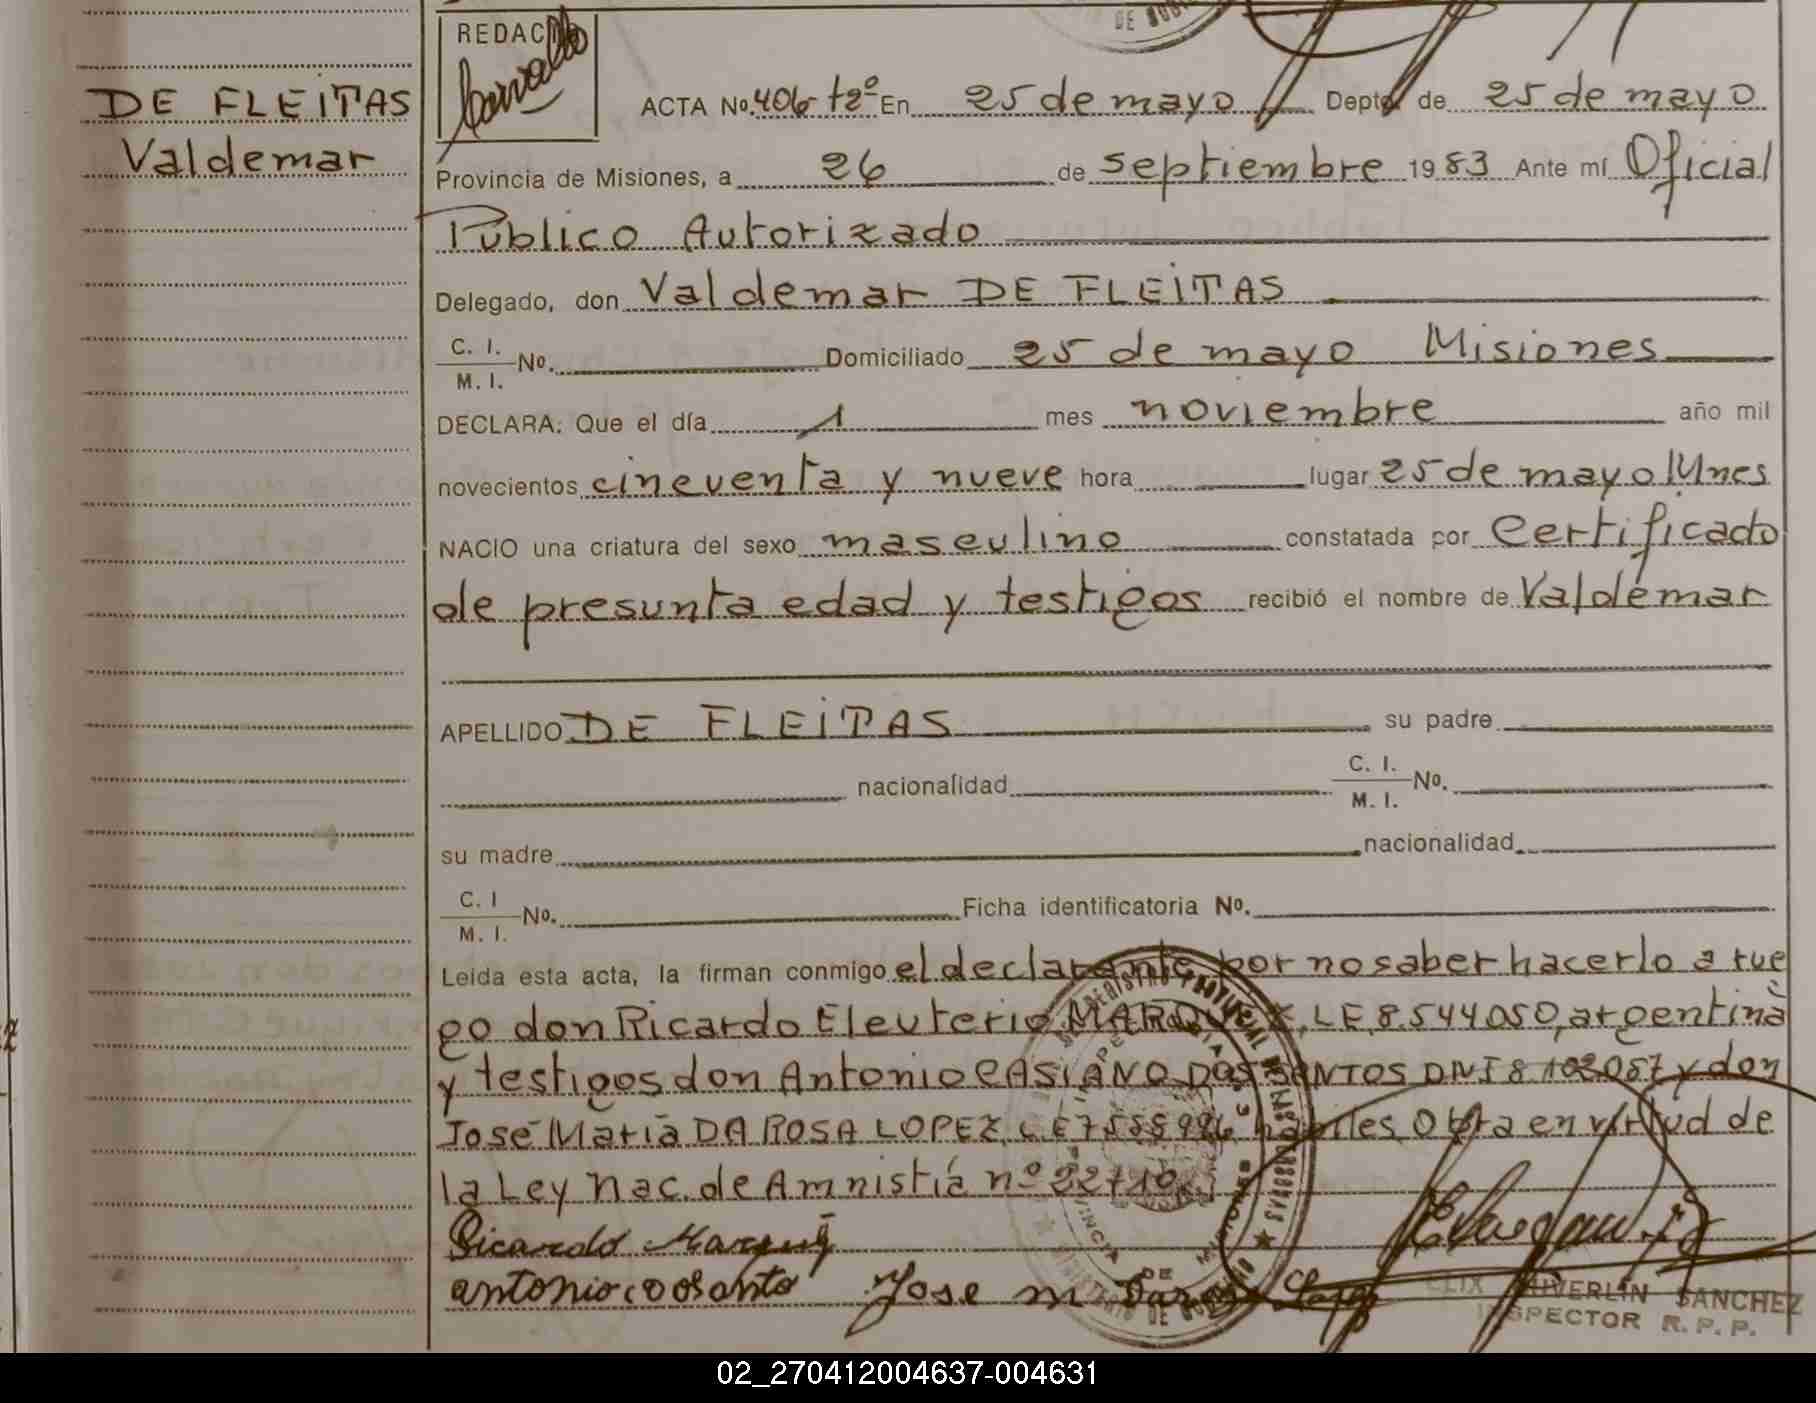 REDAC
Carvallo
DE BUE
ACTA No. 406 tº2º En 25 de mayo Depto. de 25 de mayo
DE FLEITAS
Valdemar
Provincia de Misiones, a 26 de septiembre 1983 Ante mí Oficial
Público Autorizado
Delegado, don Valdemar DE FLEITAS
C. I.
M. I. No. Domiciliado 25 de mayo Misiones
DECLARA: Que el día 1 mes noviembre año mil
novecientos cincuenta y nueve hora lugar 25 de mayo lUnes
NACIO una criatura del sexo masculino constatada por Certificado
de presunta edad y testigos recibió el nombre de Valdemar
APELLIDO DE FLEITAS su padre
nacionalidad C. I.
M. I. No.
su madre nacionalidad
C. I
M. I. No. Ficha identificatoria No.
Leida esta acta, la firman conmigo el declarante por no saber hacerlo a rue
go don Ricardo Eleuterio MARQUEZ, LE 8.544050, argentina
y testigos don Antonio CASIANO DOS SANTOS DNI 8.102.057 y don
José María DA ROSA LOPEZ, LE 7.555.996 habiles Obra en virtud de
la Ley Nac. de Amnistía nº 22710
Ricardo Marquez
antonio c dosanto Jose m Darosa Lopez
CLIX HIVERLIN SANCHEZ
INSPECTOR R. P. P.
02_270412004637-004631